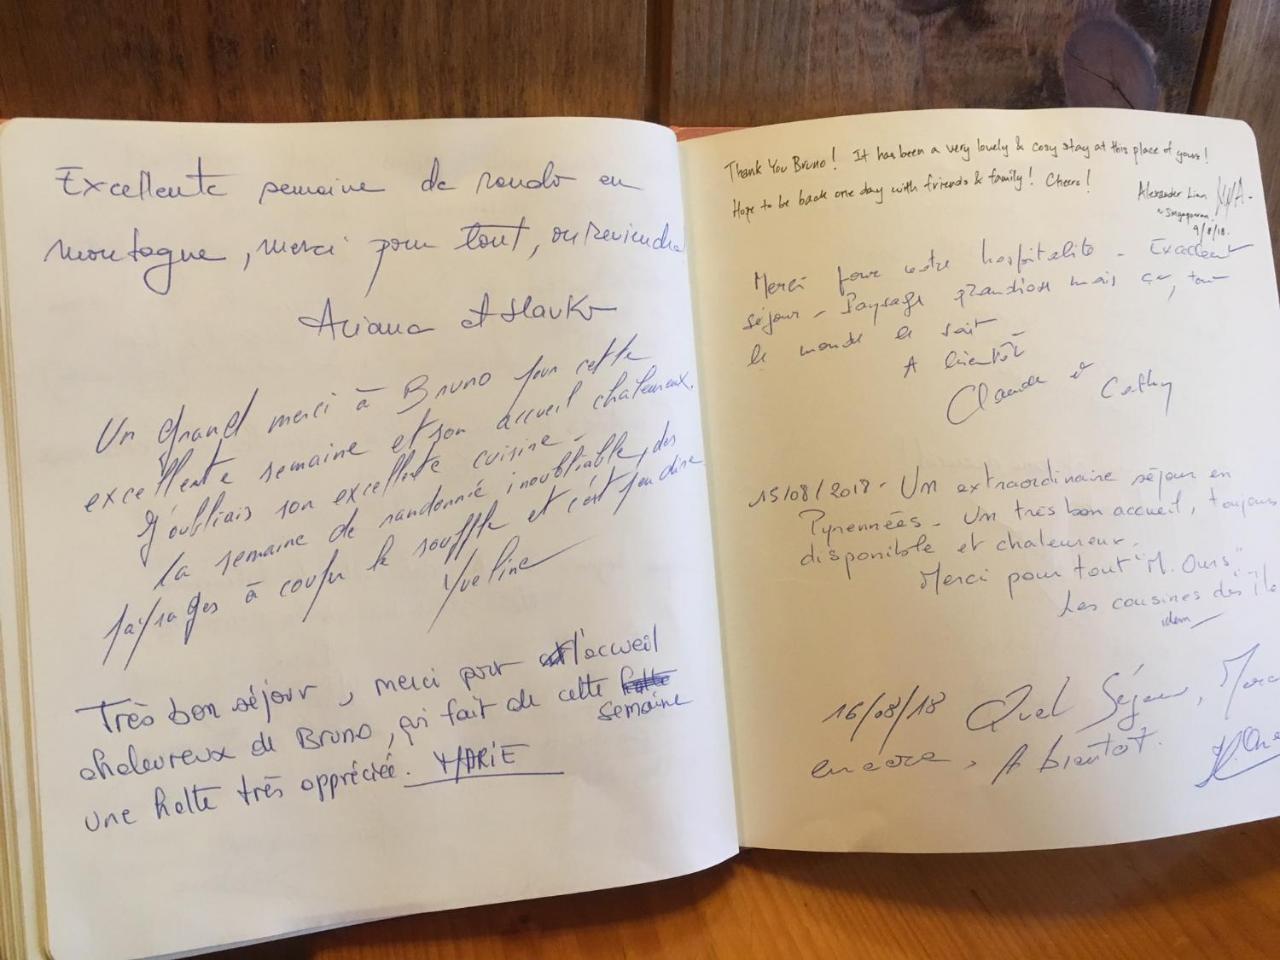 Excellente semaine de rando en
montagne, merci pour tout, on reviendra
Ariana et Slavko
Un grand merci à Bruno pour cette
excellente semaine et son accueil chaleureux.
J'oubliais son excellente cuisine -
La semaine de randonnée inoubliable, des
paysages à couper le souffle et c'est peu dire
Yveline
Très bon séjour, merci pour l'accueil
chaleureux de Bruno, qui fait de cette
semaine
une halte très appréciée. MARIE
Thank You Bruno! It has been a very lovely & cosy stay at this place of yours!
Hope to be back one day with friends & family! Cheers!
Alexander Lian
Singaporean
9/8/18.
Merci pour votre hospitalité - Excellent
séjour - Paysage grandiose mais ça, tout
le monde le sait -
A bientôt
Claude et Cathy
15/08/2018 - Un extraordinaire séjour en
Pyrennées - Un très bon accueil, toujours
disponible et chaleureux.
Merci pour tout "M. Ours"
Les cousines des île
16/08/18 Quel Séjour, Merci
encore, A bientôt.